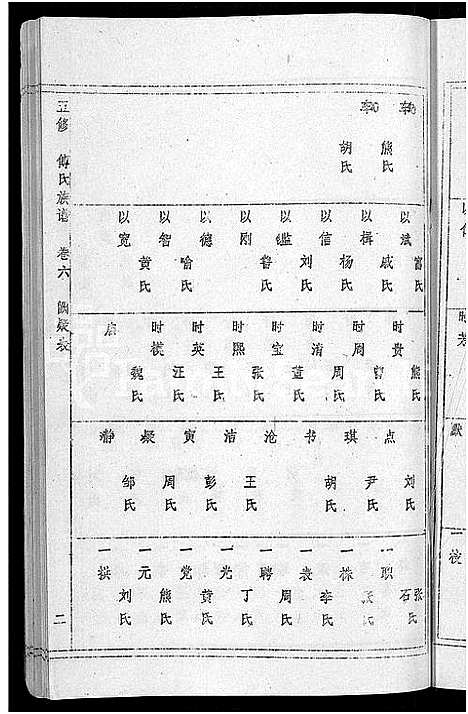 五修 傅氏族谱 卷六 阙疑表
二
熊氏
胡氏
以斌 富氏 戚氏
以楫 杨氏
以信 刘氏
以鉴 鲁氏
以刚
以德 喻氏
以智 黄氏
以宽
时贵 熊氏
时周 曾氏
时清 周氏
时宝 董氏
时熙 张氏
时英 王氏
时 汪氏
魏氏
点 刘氏
琪 尹氏
书 胡氏
沧
洁 王氏
寅 彭氏
凝 周氏
静 邹氏
一职 张氏 石氏
一株 张氏
一表 李氏
一聘 周氏
一光 丁氏
一党 黄氏
一元 熊氏
一棋 刘氏
以信
时芳
默
一校